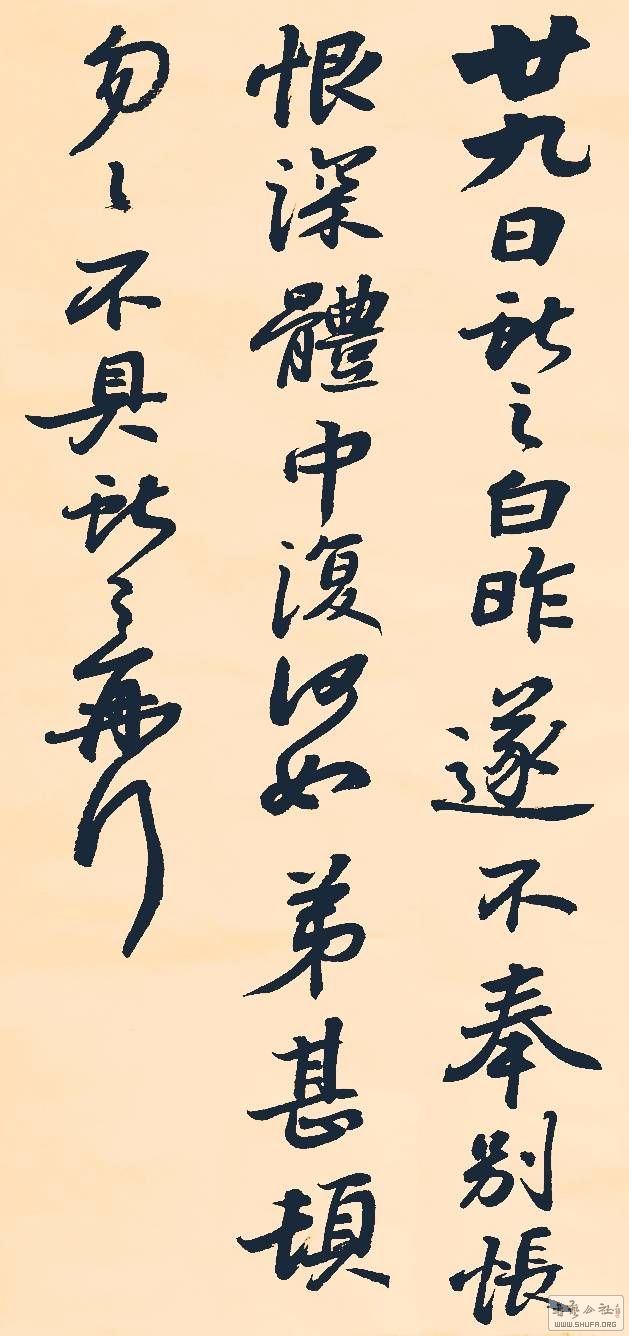 廿九日献之白昨遂不奉别悵
恨深體中復何如弟甚頓
匆〻不具献之再行
WWW.SHUFA.ORG